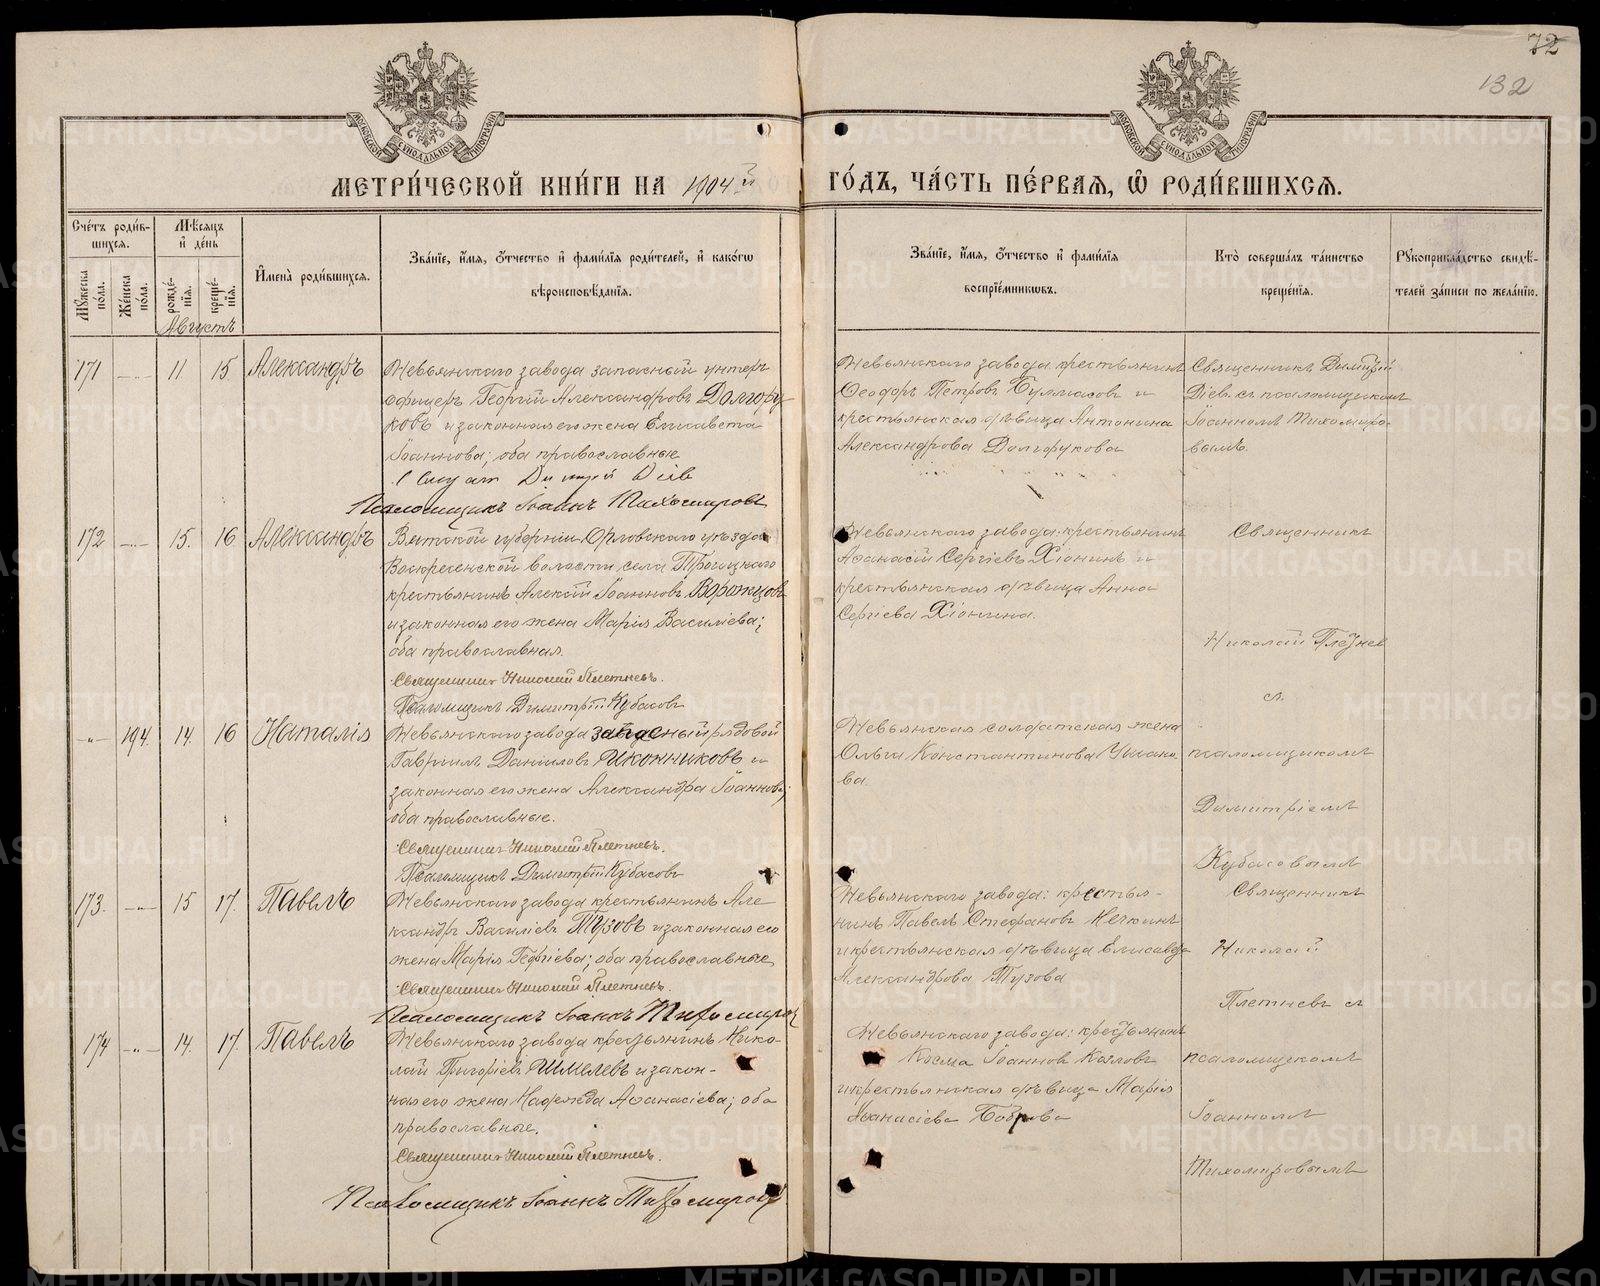 72
132
МЕТРИ́ЧЕСКОЙ КНИ́ГИ НА 1904й ГО́ДЪ, ЧА́СТЬ ПЕ́РВАЯ, Ѡ҆ РОДИ́ВШИХСѦ.
МОСКОВСКОЙ СѴНОДАЛЬНОЙ ТИПОГРАФІИ
МОСКОВСКОЙ СѴНОДАЛЬНОЙ ТИПОГРАФІИ
Сче́тъ роди́в-
шихся.
Мꙋжеска по́ла.
Же́нска по́ла.
Мѣ́сяцъ
и҆ де́нь
рожде́-нїя.
креще́-нїя.
И҆мена̀ роди́вшихся.
Зва́нїе, и҆́мя, ѻ҆́тчество и҆ фами́лїя роди́телей, и҆ како́гѡ
вѣроисповѣ́данїя.
Зва́нїе, и҆́мя, ѻ҆́тчество и҆ фами́лїя
воспрїе́мникѡвъ.
Кто̀ соверша́лъ та́инство
креще́нїя.
Рꙋкоприкла́дство свидѣ́-
телей за́писи по жела́нїю.
Августъ
171 —„— 11 15 Александръ
Невьянскаго завода запасный унтеръ
офицеръ Георгій Александровъ Долгору
ковъ и законная его жена Елисавета
Іоаннова; оба православные
Димитрій Діевъ
Псаломщикъ Іоаннъ Тихомировъ
Невьянскаго завода: крестьянинъ
Ѳеодоръ Петровъ и
крестьянская дѣвица Антонина
Александрова Долгорукова
Священникъ Димитрій
Діевъ съ псаломщикомъ
Іоанномъ Тихомиро-
вымъ.
172 —„— 15. 16 Александръ
Вятской губерніи Орловскаго уѣзда
Воскресенской волости села Троицкаго
крестьянинъ Алексій Іоанновъ Ворожцовъ
и законная его жена Марія Василіева;
оба православная.
Священникъ Николай Плетневъ.
Псаломщикъ Димитрій Кубасовъ
Невьянскаго завода: крестьянинъ
Аѳанасій Сергіевъ Хіонинъ и
крестьянская дѣвица Анна
Сергіева Хіонина.
Священникъ
Николай Плетнев
съ
—„— 194. 14. 16 Наталія
Невьянскаго завода запасный рядовой
Гавріилъ Даніиловъ Иконниковъ и
законная его жена Александра Іоаннова;
оба православные.
Священникъ Николай Плетневъ.
Псаломщикъ Димитрій Кубасовъ
Невьянская солдатская жена
Ольга Константинова Ушако
ва
псаломщикомъ
Димитріемъ
Кубасовымъ
173. —„— 15 17. Павелъ
Невьянскаго завода крестьянинъ Але
ксандръ Василіевъ Тузовъ и законная его
жена Марія Георгіева; оба православные
Священникъ Николай Плетневъ.
Псаломщикъ Іоаннъ Тихомировъ
Невьянскаго завода: крестья-
нинъ Павелъ Стефановъ Нечкинъ
и крестьянская дѣвица Елисавета
Александрова Тузова
Священникъ
Николай
Плетневъ съ
174 —„— 14. 17. Павелъ
Невьянскаго завода крестьянинъ Нико-
лай Григоріевъ Шмелевъ и закон-
ная его жена Надежда Аѳанасіева; оба
православные.
Священникъ Николай Плетневъ.
Псаломщикъ Іоаннъ Тихомировъ
Невьянскаго завода: крестьянинъ
Косма Іоанновъ Козловъ
и крестьянская дѣвица Марія
Аѳанасіева Боброва
псаломщикомъ
Іоанномъ
Тихомировымъ
METRIKI.GASO-URAL.RU